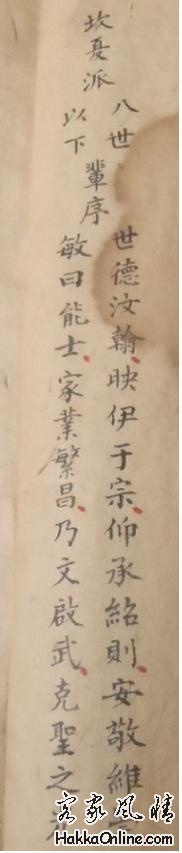 坎夏派
八世
以下
輩序
世德汝翰、映伊于宗、仰承紹則、安敬維
敏曰能士、家業繁昌、乃文啟武、克聖之
客家風情
HakkaOnline.com